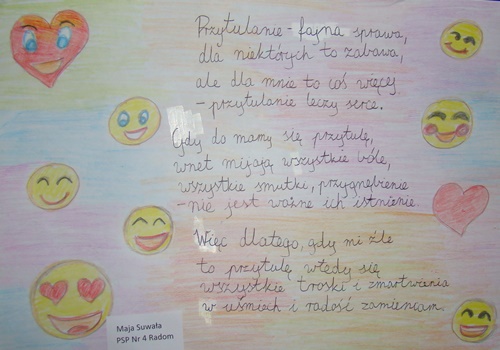 Przytulanie - fajna sprawa,
dla niektórych to zabawa,
ale dla mnie to coś więcej
- przytulanie leczy serce.
Gdy do mamy się przytulę,
wnet mijają wszystkie bóle,
wszystkie smutki, przygnębienie
- nie jest ważne ich istnienie.
Więc dlatego, gdy mi źle
to przytulę wtedy się
wszystkie troski i zmartwienia
w uśmiech i radość zamieniam.
Maja Suwała
PSP Nr 4 Radom